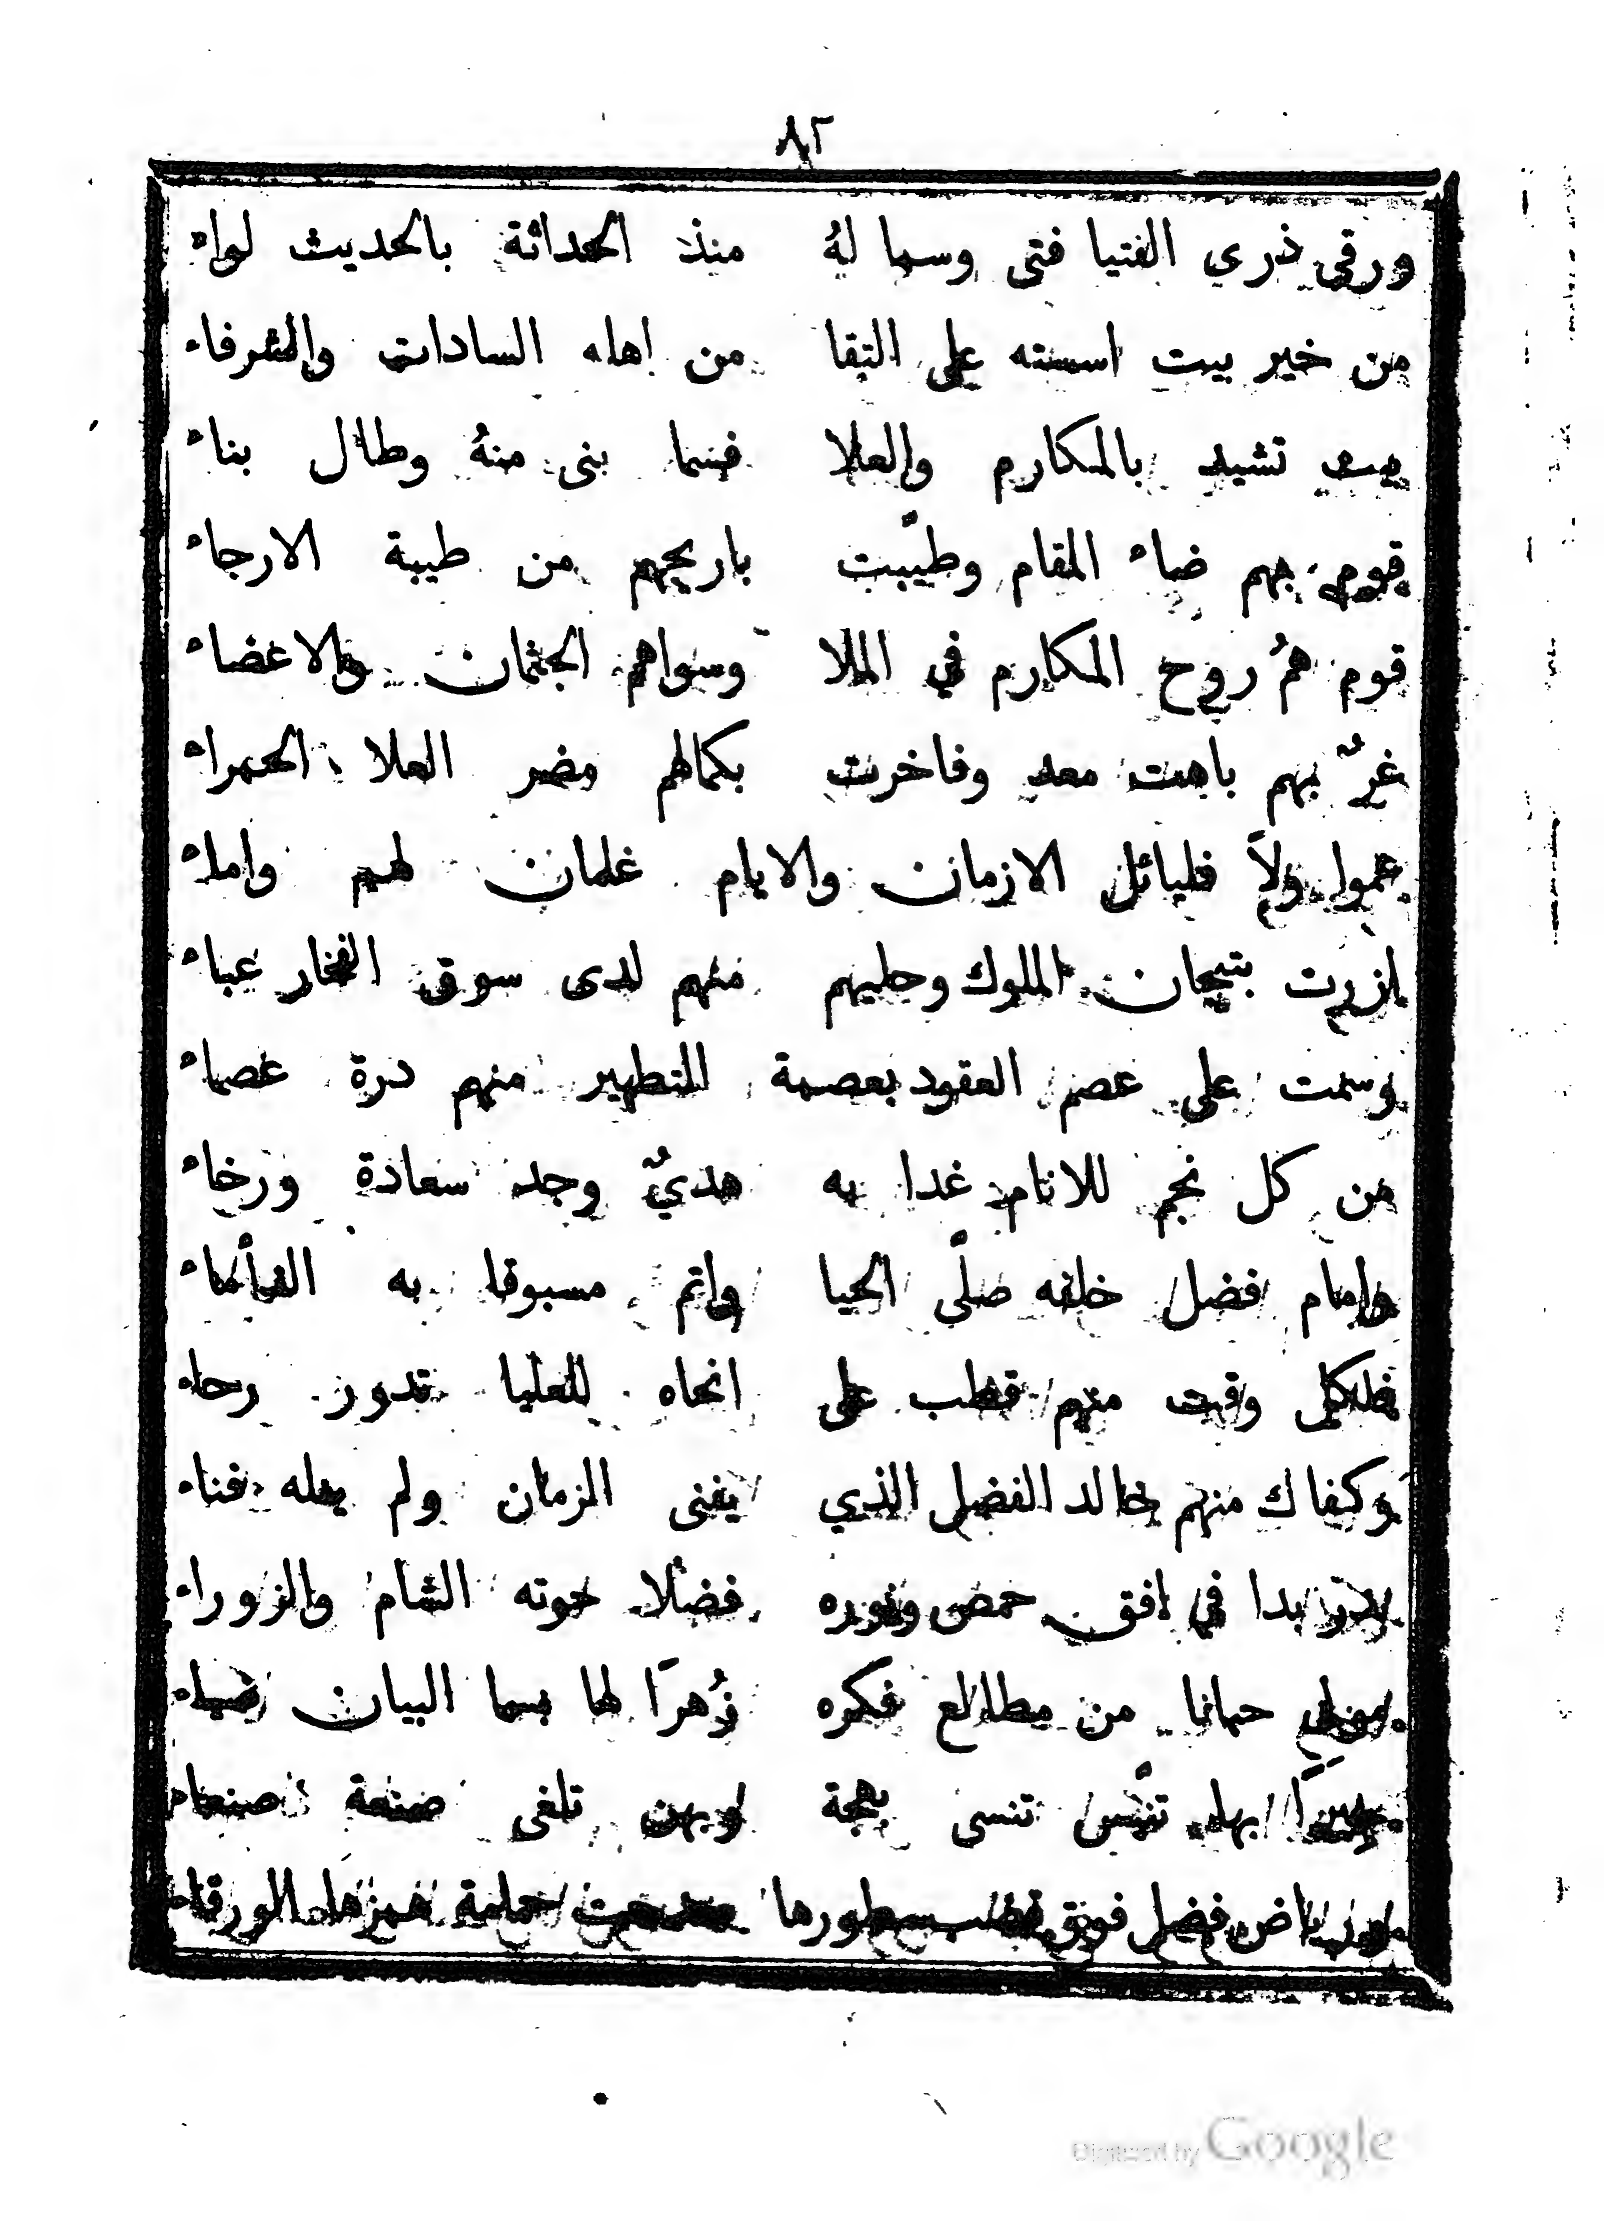 ٨٢
ورقى ذري الفتيا فتى وسما لهُ منذ الحداثة بالحديث لواء
من خير بيت اسسته على التقا من اهله السادات والشرفاء
بيت تشيد بالمكارم والعلا فسما بنى منهُ وطال بناء
قوم بهم ضاء المقام وطيّبت باريجهم من طيبة الارجاء
قوم همُ روح المكارم في الملا وسواهم الجثمان والاعضاء
غرٌ بهم باهت معد وفاخرت بكمالهم مضر العلا الحمراء
عموا ولاً فليائل الازمان والايام غلمان لهم واماء
ازرت بتيجان الملوك وحليهم منهم لدى سوق الفخار عباء
وسمت على عصم العقود بعصمة للتطهير منهم درة عصماء
من كل نجم للانام غدا به هديٌ وجد سعادة ورخاء
وامام فضل خلفه صلّى الحيا واتم مسبوقا به
فلكل وقت منهم قطب على انحاه للعليا تدور رحاء
وكفاك منهم خالد الفضل الذي يفنى الزمان ولم يعله فناء
بدر بدا في افق حمص ونوره فضلا حوته الشام والزوراء
مولى حبانا من مطالع فكره زُهرًا لها بسما البيان
بها تنّس تنسى بهجة وبهن تلغى صنعة صنعاء
رياض فضل فوق سطورها همزها الورقاء
Digitized by Google